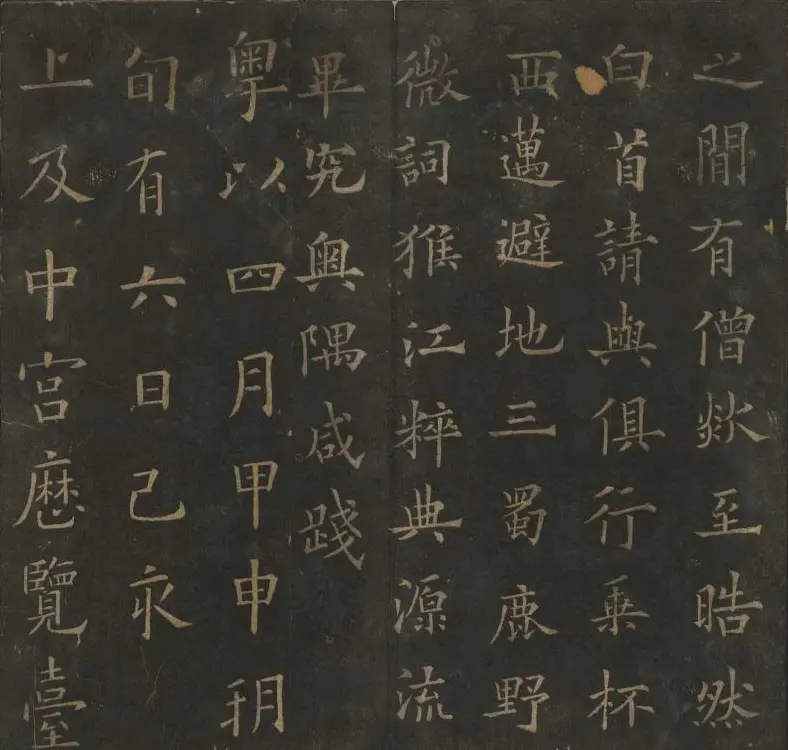 之閒有僧欻至晧然
白首請與俱行乗杯
西邁避地三蜀鹿野
微詞猴江粹典源流
畢究奥隅咸踐
粤以四月甲申朔
旬有六日己亥
上及中宫歷覽臺